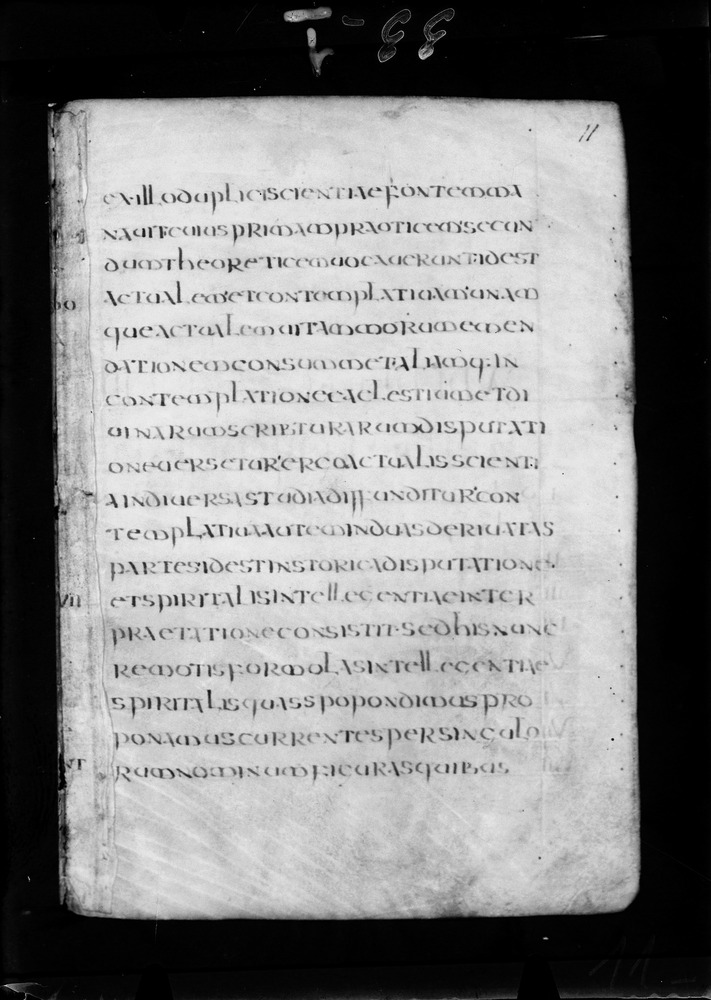 11
exillo duplicis cientiae fonte mma
nauit cuius primam practicem secun
dam theoreticem uocauerunt idest
actualem et contemplatiuam unam
que actualem uitam morum emen
dationem consummet aliam q: in
contemplatione caelestium et di
uinarum scripturarum disputati
one uersetur ergo actualis scienti
a in diuersa studia diffunditur con
templatiua autem in duas deriuatas
partes idest instorica disputatione
et spiritalis intellegentiae inter
praetatione consistit sed his nunc
remotis formolas intellegentiae
spiritalis quas spopondimus pro
ponamus currentes per singulo
rum nominum figuras quibus